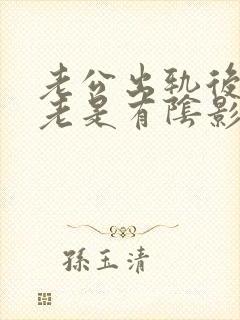 老公出轨後
老是有陰影
孫玉清